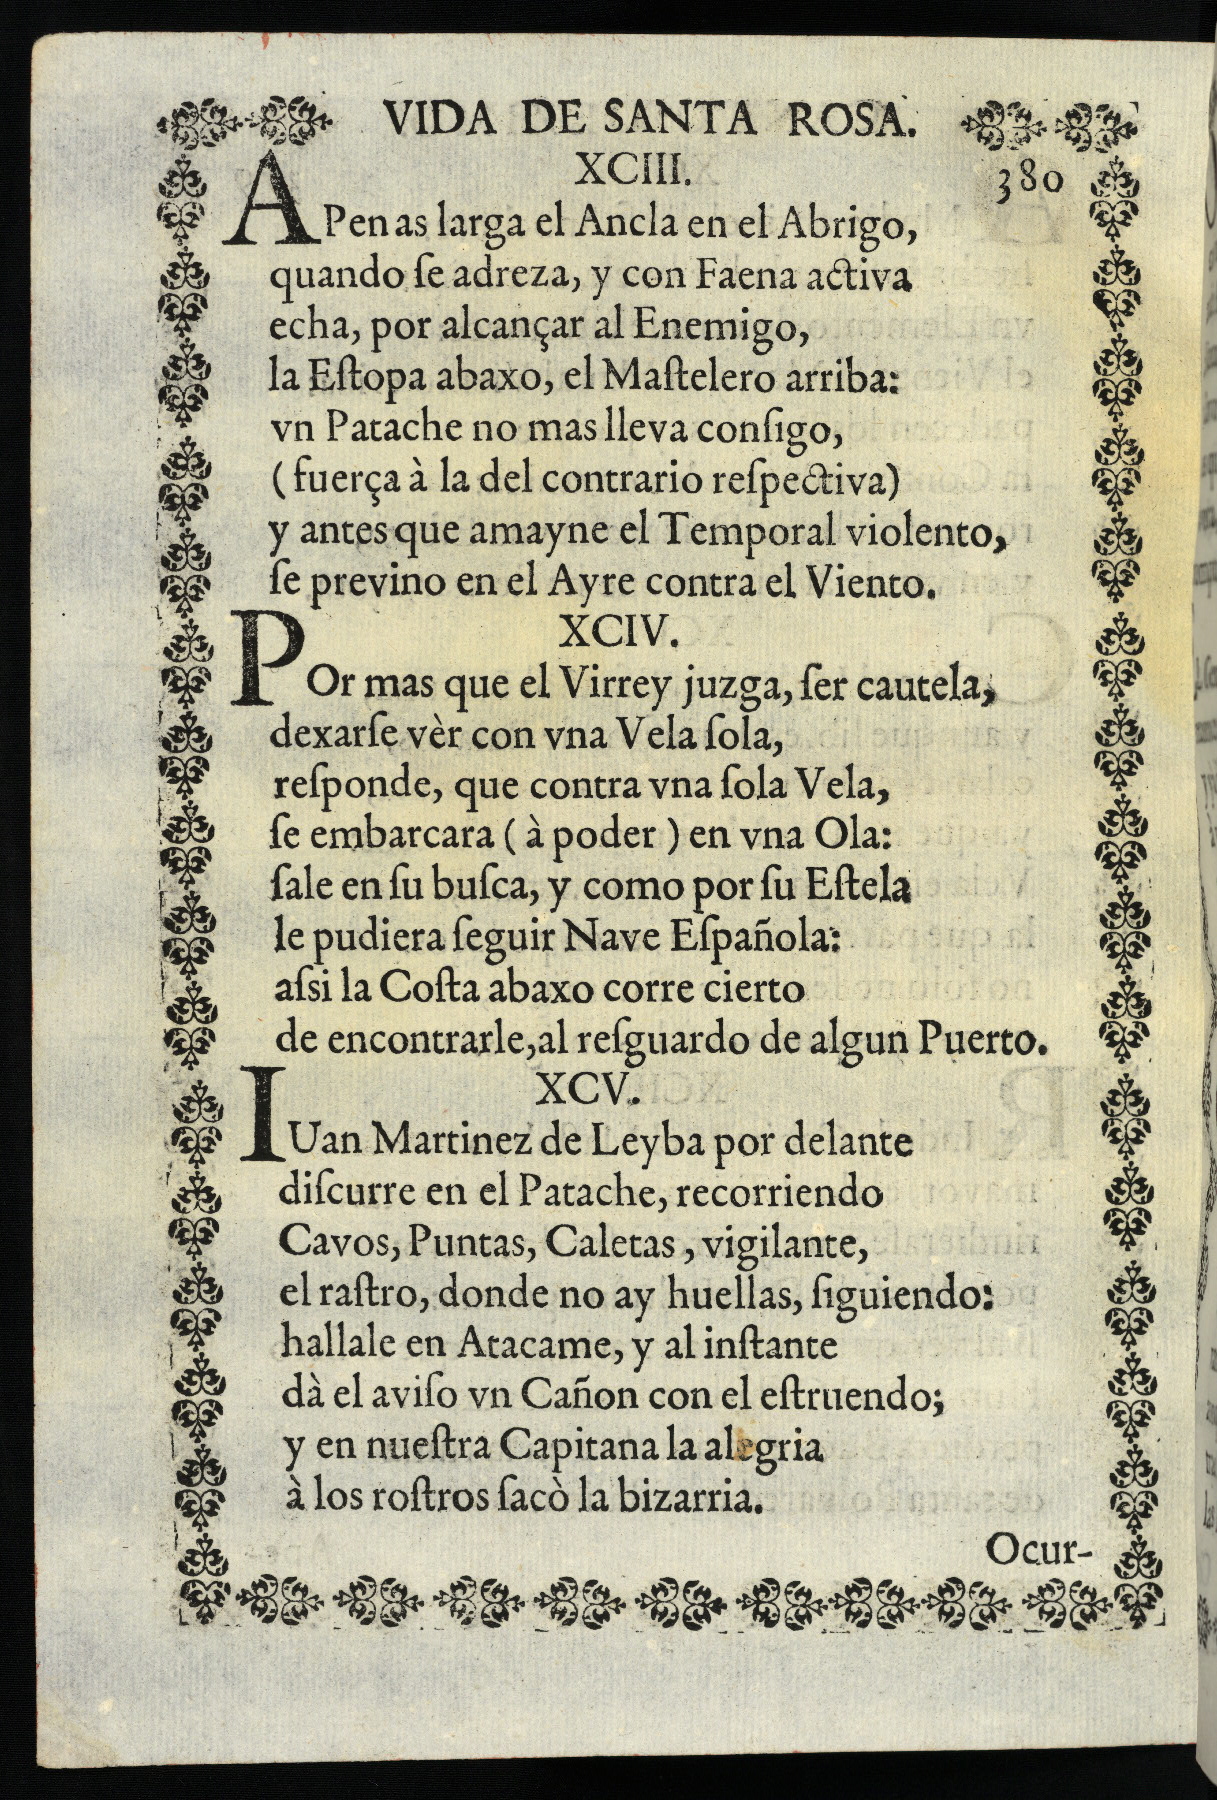 VIDA DE SANTA ROSA.
XCIII.
380
APenas larga el Ancla en el Abrigo,
quando ſe adreza, y con Faena activa
echa, por alcançar al Enemigo,
la Eſtopa abaxo, el Maſtelero arriba:
vn Patache no mas lleva conſigo,
(fuerça à la del contrario reſpectiva)
y antes que amayne el Temporal violento,
ſe previno en el Ayre contra el Viento.
XCIV.
POr mas que el Virrey juzga, ſer cautela,
dexarſe vèr con vna Vela ſola,
reſponde, que contra vna ſola Vela,
ſe embarcara ( à poder ) en vna Ola:
ſale en ſu buſca, y como por ſu Eſtela
le pudiera ſeguir Nave Eſpañola:
aſsi la Coſta abaxo corre cierto
de encontrarle,al reſguardo de algun Puerto.
XCV.
IUan Martinez de Leyba por delante
diſcurre en el Patache, recorriendo
Cavos, Puntas, Caletas, vigilante,
el raſtro, donde no ay huellas, ſiguiendo:
hallale en Atacame, y al inſtante
dà el aviſo vn Cañon con el eſtruendo;
y en nueſtra Capitana la alegria
à los roſtros ſacò la bizarria.
Ocur-